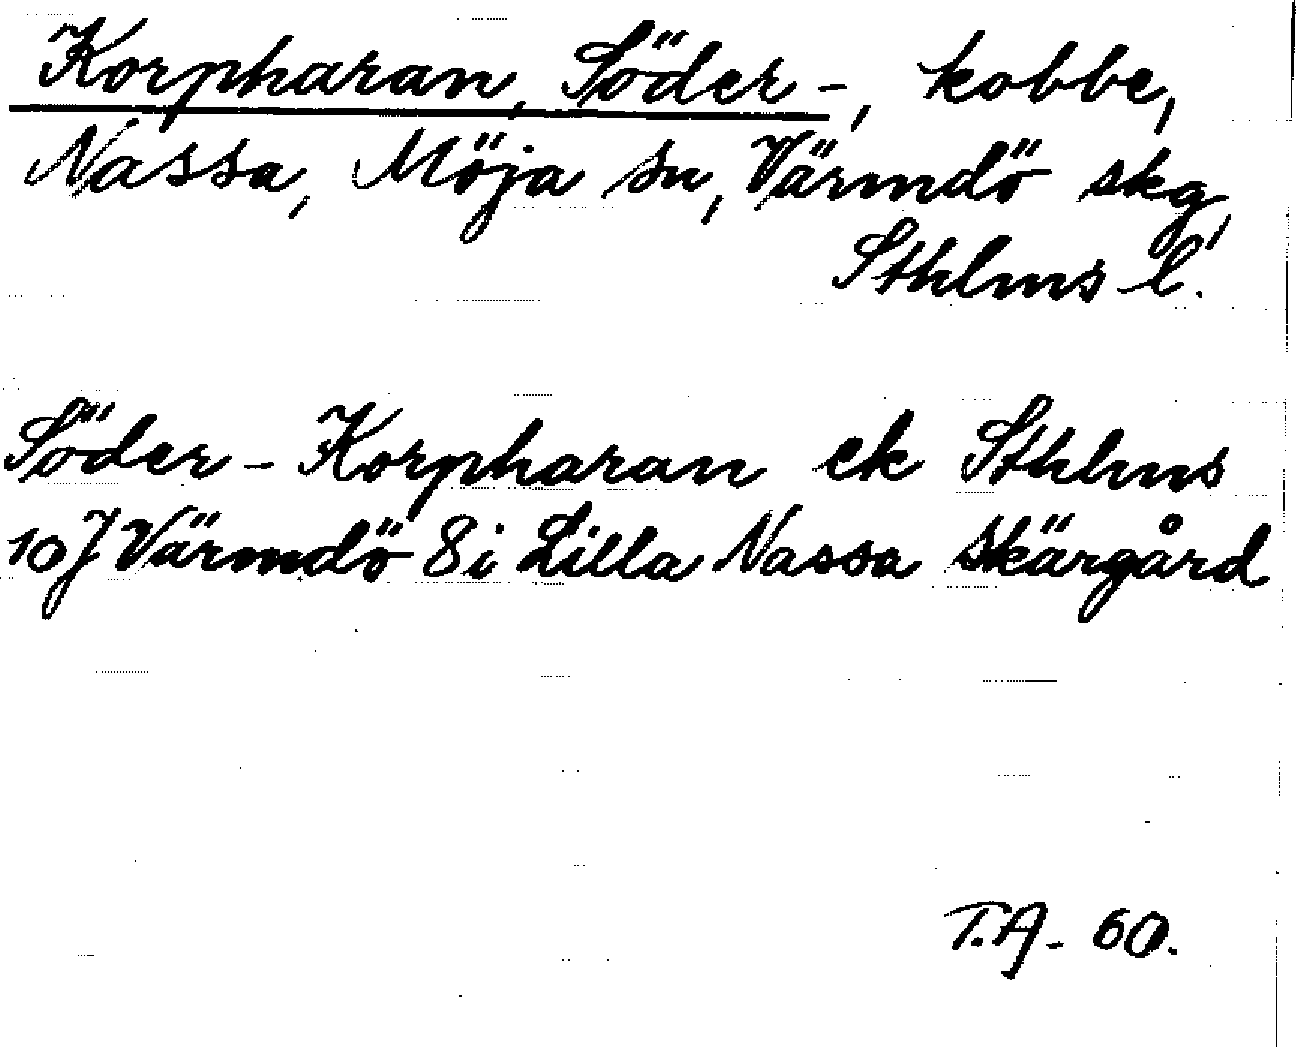 Korpharan, Söder-, kobbe,
Nassa, Möja sn, Värmdö skg,
Sthlms l.
Söder-Korpharan ek Sthlms
10J Värmdö 8 i Lilla Nassa skärgård
T.A. 60.